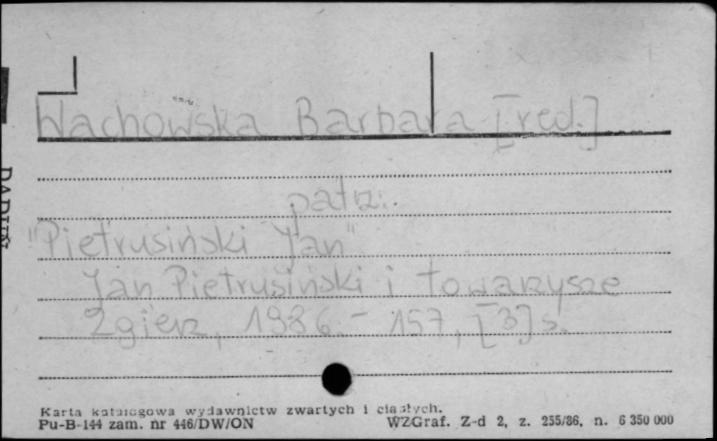 Wachowska Barbara [red.]
patrz:
"Pietrusiński Jan"
Jan Pietrusiński i towarzysze
Zgierz, 1986. - 157, [3] s.
Karta katalogowa wydawnictw zwartych i ciągłych.
Pu-B-144 zam. nr 446/DW/ON WZGraf. Z-d 2, z. 255/86, n. 6 350 000